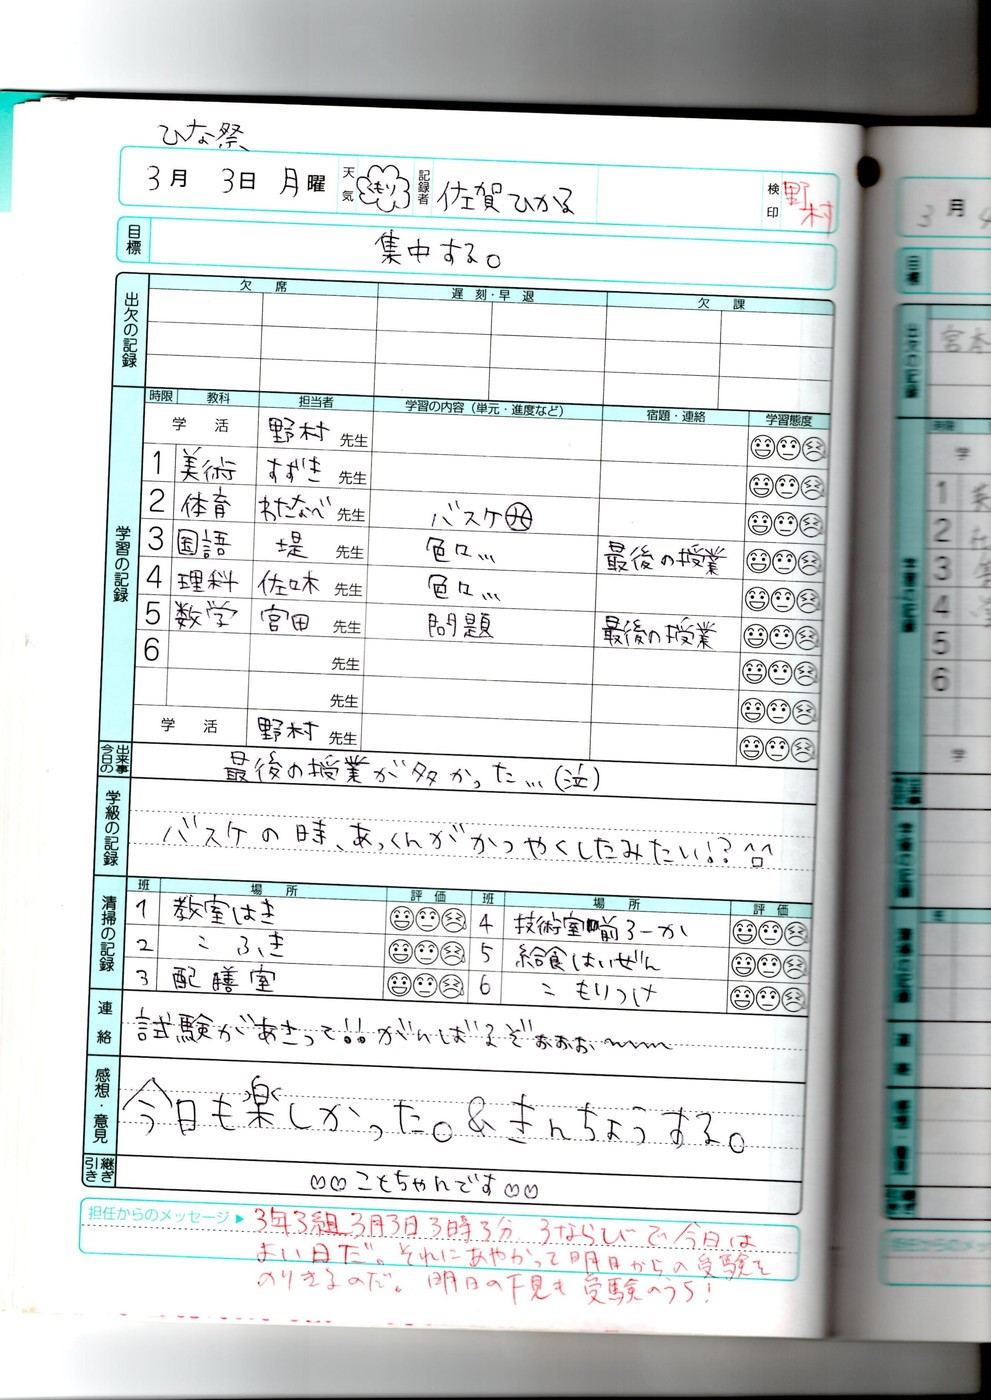 ひな祭
3月 3日 月曜 天気 くもり 記録者 佐賀ひかる 検印 野村
目標 集中する。
出欠の記録 欠席 遅刻・早退 欠課
学習の記録 時限 教科 担当者 学習の内容（単元・進度など） 宿題・連絡 学習態度
学活 野村 先生
1 美術 すずき 先生
2 体育 わたなべ 先生 バスケ
3 国語 堤 先生 色々… 最後の授業
4 理科 佐々木 先生 色々…
5 数学 宮田 先生 問題 最後の授業
6 先生
先生
学活 野村 先生
今日の出来事 最後の授業が多かった…(泣)
学級の記録 バスケの時、あっくんがかつやくしたみたい!? ^^
清掃の記録 班 場所 評価 班 場所 評価
1 教室はき 4 技術室前ろーか
2 〃 ふき 5 給食はいぜん
3 配膳室 6 〃 もりつけ
連絡 試験があさって!! がんばるぞぉぉぉ
感想・意見 今日も楽しかった。& きんちょうする。
引き継ぎ ♡♡こもちゃんです♡♡
担任からのメッセージ▶ 3年3組 3月3日 3時3分 3ならびで今日は
よい日だ。それにあやかって明日からの受験を
のりきるのだ。明日の下見も受験のうち!
3月 4
目標
出欠の記録
宮本
学
1
2
3
4
5
6
学